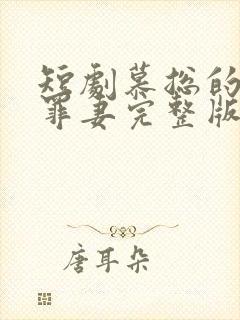 短劇慕总的
罪妻完整版
唐耳朵